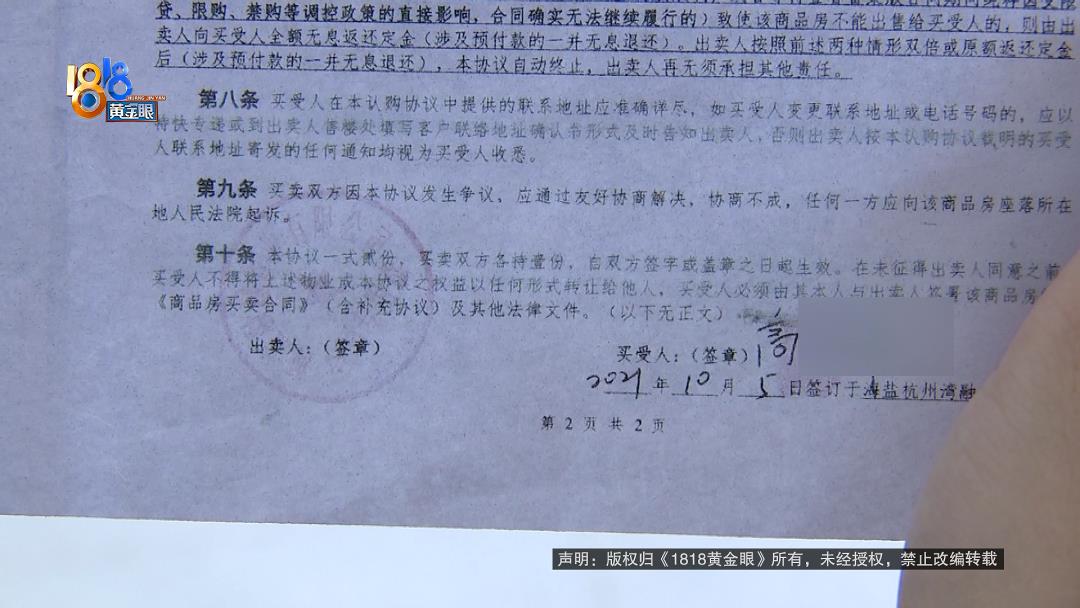 贷、限购、禁购等调控政策的直接影响，合同确实无法继续履行的）致使该商品房不能出售给买受人的，则由出
卖人向买受人全额无息返还定金（涉及预付款的一并无息退还）。出卖人按照前述两种情形双倍或原额返还定金
后（涉及预付款的一并无息退还），本协议自动终止，出卖人再无须承担其他责任。
1818
黄金眼
HUANG JIN YAN
第八条 买受人在本认购协议中提供的联系地址应准确详尽，如买受人变更联系地址或电话号码的，应以
特快专递或到出卖人售楼处填写客户联络地址确认书形式及时告知出卖人，否则出卖人按本认购协议载明的买受
人联系地址寄发的任何通知均视为买受人收悉。
第九条 买卖双方因本协议发生争议，应通过友好协商解决，协商不成，任何一方应向该商品房座落所在
地人民法院起诉。
第十条 本协议一式贰份，买卖双方各持壹份，自双方签字或盖章之日起生效。在未征得出卖人同意之前
买受人不得将上述物业或本协议之权益以任何形式转让给他人，买受人必须由其本人与出卖人签署该商品房
《商品房买卖合同》（含补充协议）及其他法律文件。（以下无正文）
出卖人：（签章）
买受人：（签章）高
2021年10月5日签订于海盐杭州湾融
第 2 页 共 2 页
声明：版权归《1818黄金眼》所有，未经授权，禁止改编转载